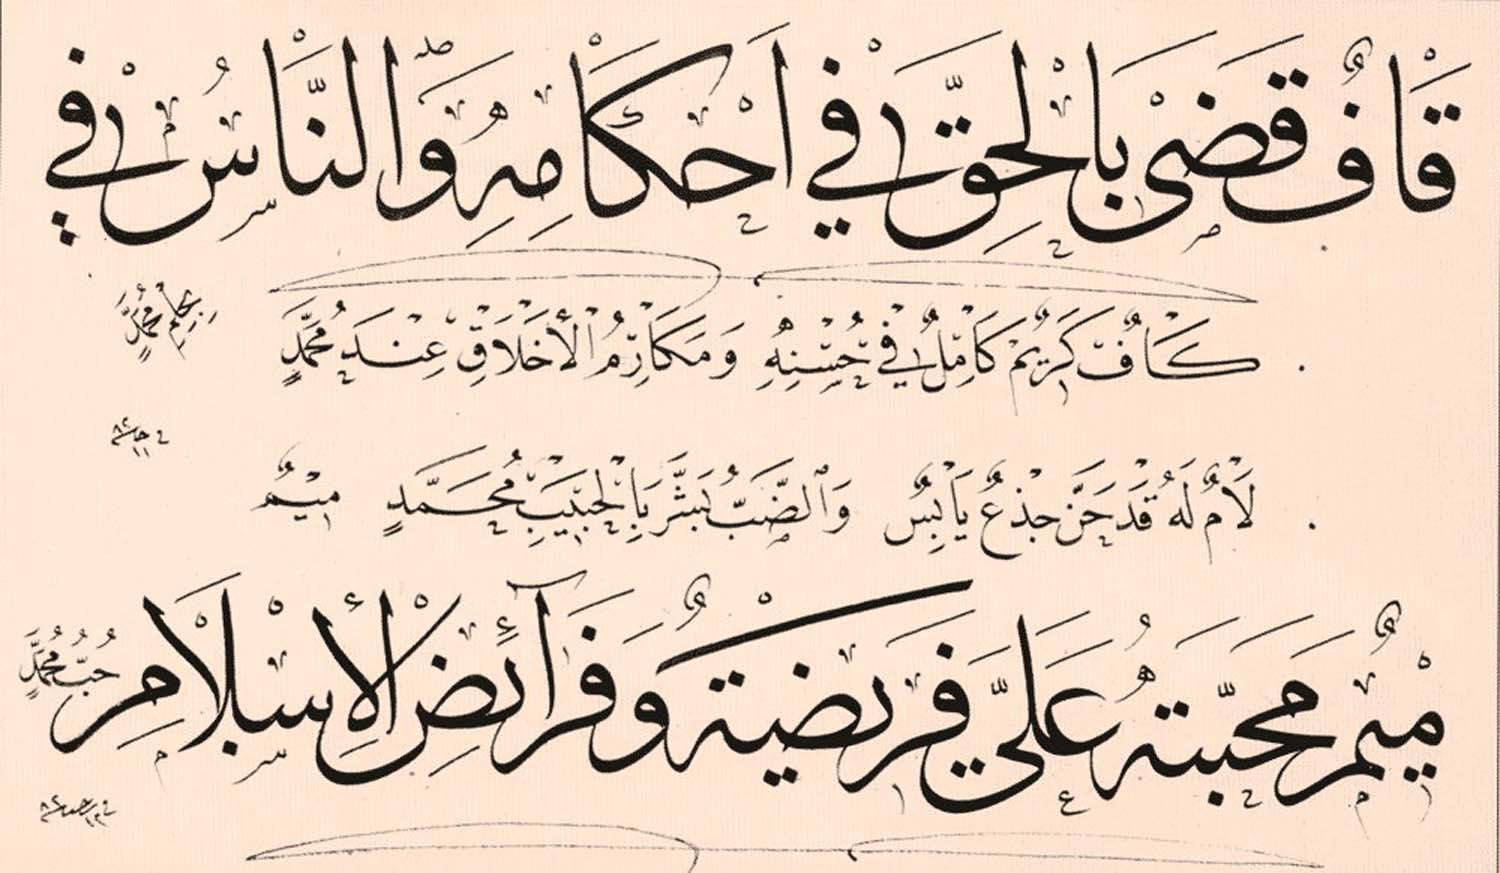 قَافٌ قَضٰى بِالْحَقِّ فِي أَحْكَامِهِ وَالنَّاسُ فِي
بِحُكْمِ مُحَمَّدٍ
كَافٌ كَرِيمٌ كَامِلٌ فِي حُسْنِهِ وَمَكَارِمُ الْأَخْلَاقِ عِنْدَ مُحَمَّدٍ
لَامٌ لَهُ قَدْ حَنَّ جِذْعٌ يَابِسٌ وَالضَّبُّ بَشَّرَ بِالْحَبِيبِ مُحَمَّدٍ مِيمٌ
مِيمٌ مَحَبَّتُهُ عَلَيَّ فَرِيضَةٌ وَفَرَآئِضُ الْإِسْلَامِ حُبُّ مُحَمَّدٍ